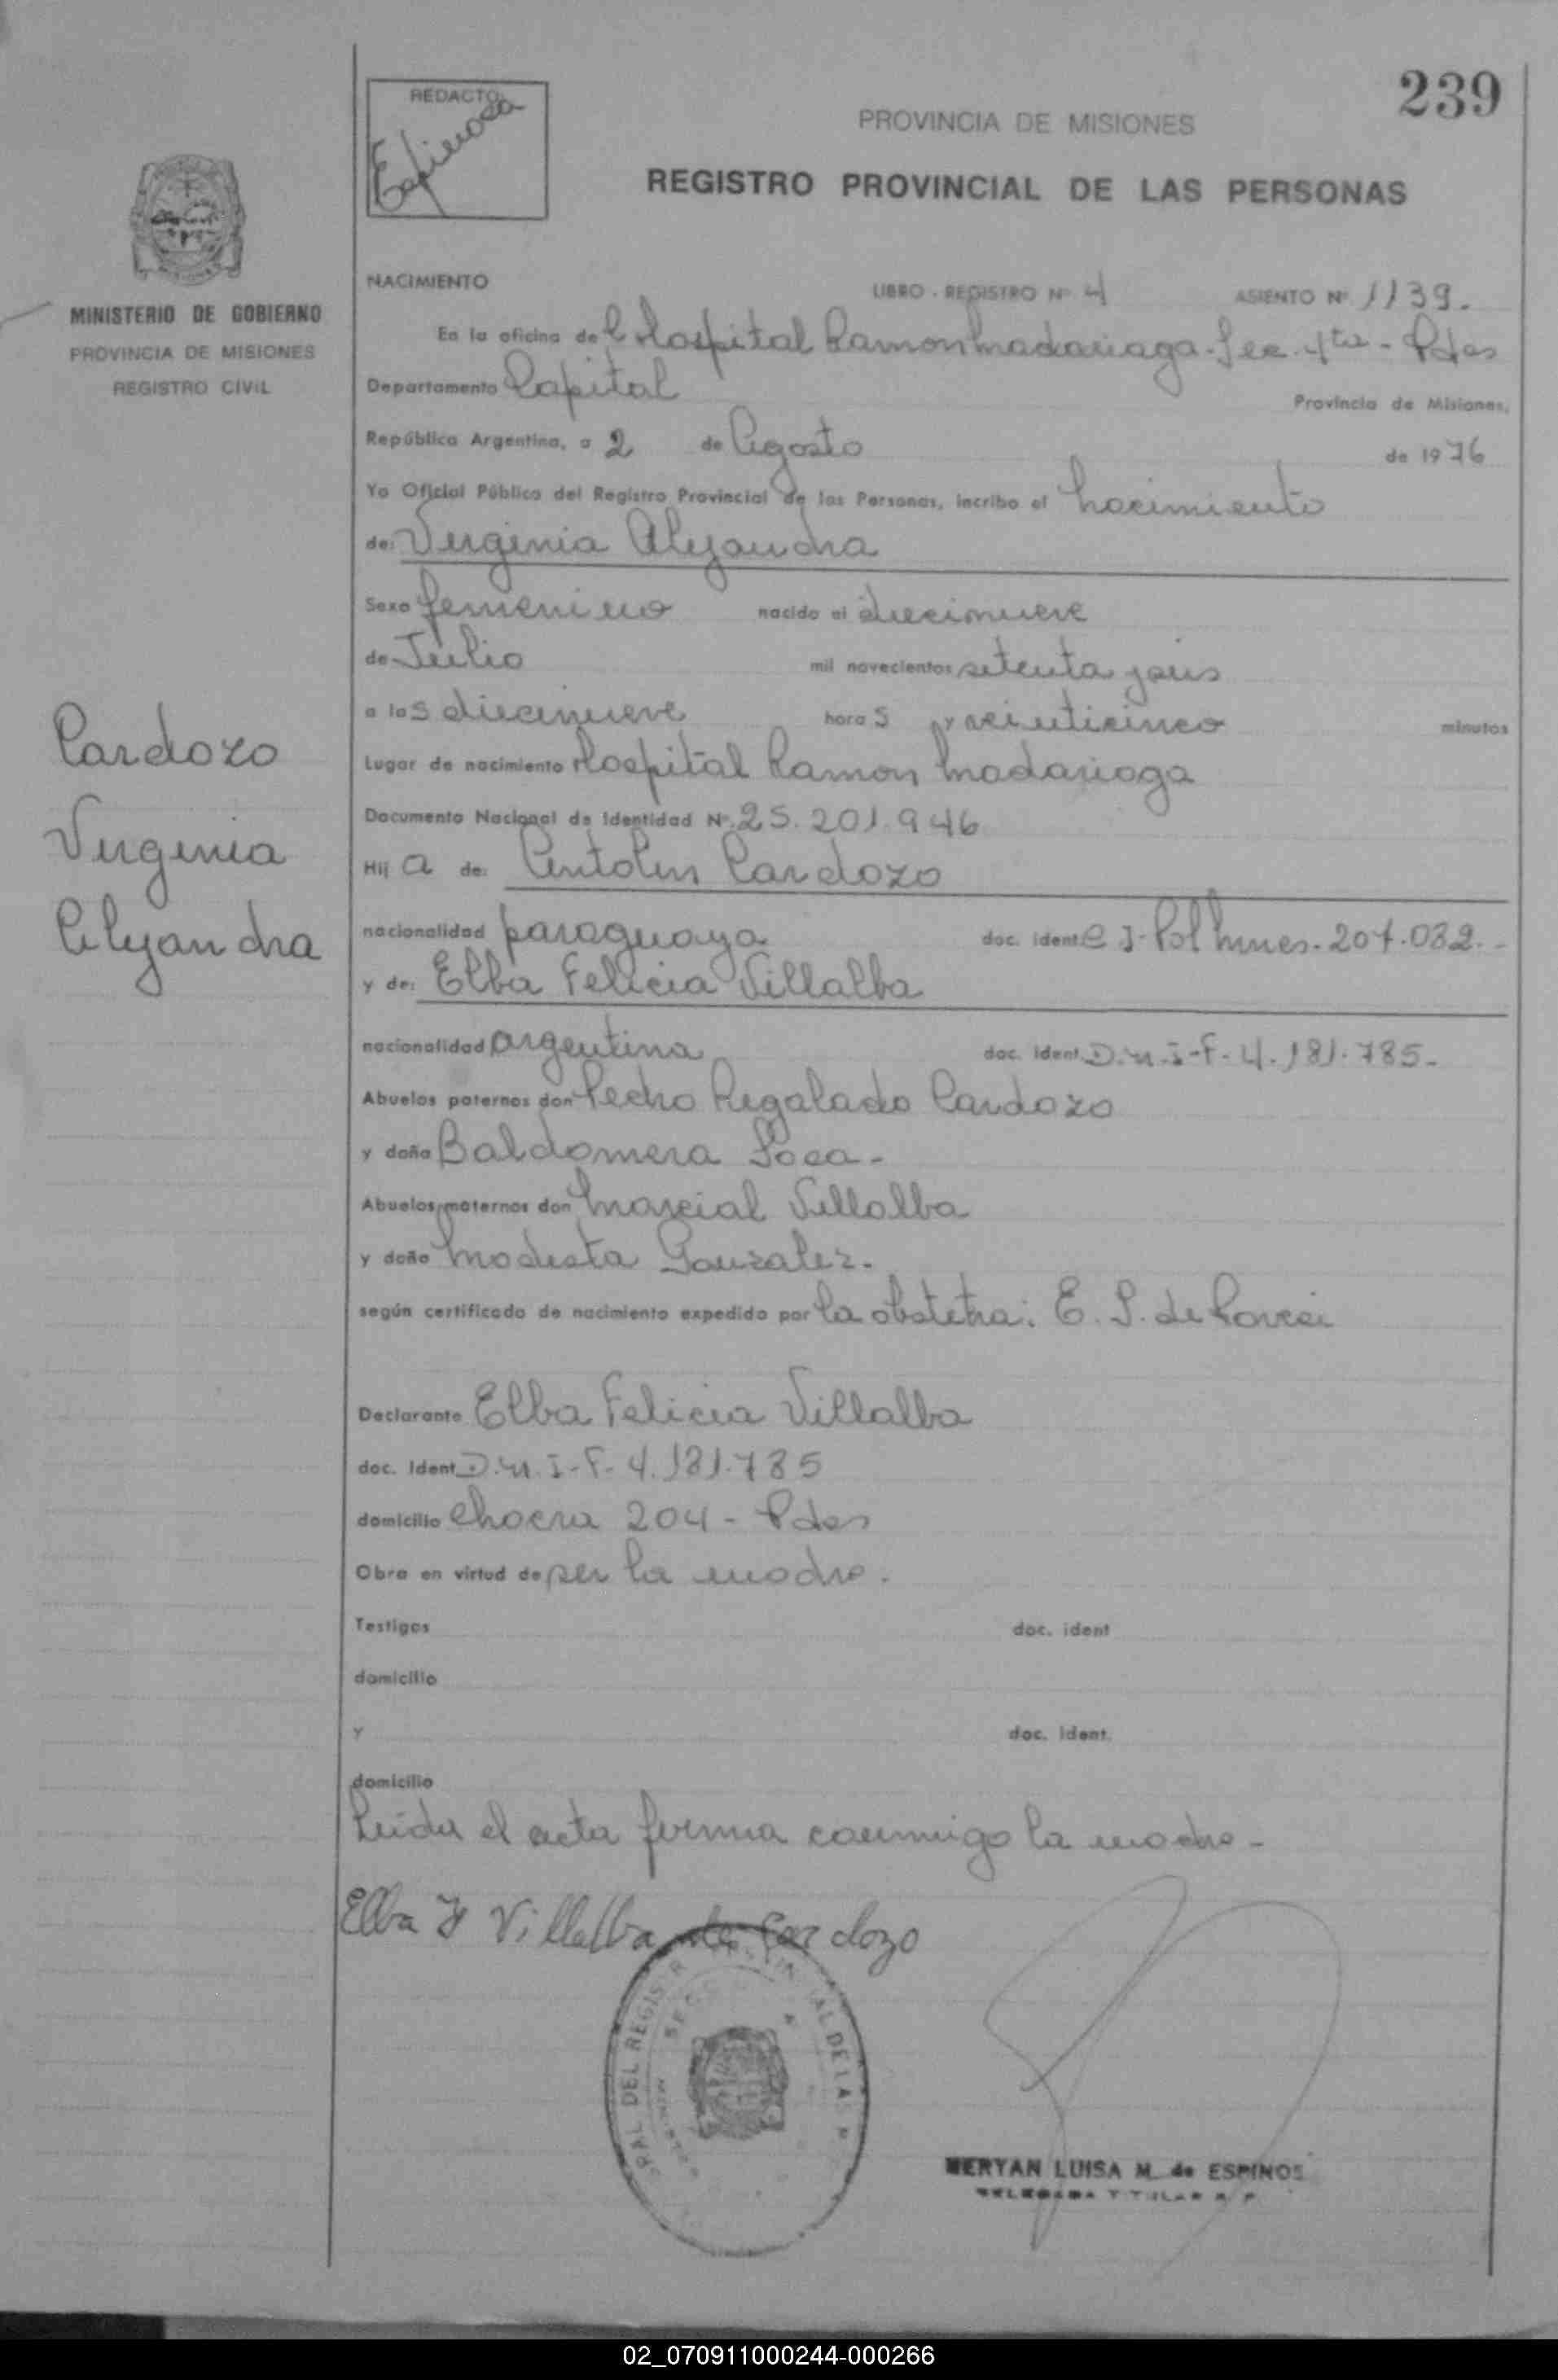 239
REDACTO:
Espinosa
PROVINCIA DE MISIONES
REGISTRO PROVINCIAL DE LAS PERSONAS
MINISTERIO DE GOBIERNO
PROVINCIA DE MISIONES
REGISTRO CIVIL
NACIMIENTO LIBRO - REGISTRO Nº 4 ASIENTO Nº 1139.
En la oficina del Hospital Ramon Madariaga - Sec. 4ta - Pdas
Departamento Capital Provincia de Misiones,
República Argentina, a 2 de Agosto de 1976
Yo Oficial Público del Registro Provincial de las Personas, incribo el Nacimiento
de: Virginia Alejandra
Sexo femenino nacido el diecinueve
de Julio mil novecientos setenta y seis
a las diecinueve horas y veinticinco minutos
Lugar de nacimiento Hospital Ramon Madariaga
Documento Nacional de Identidad Nº 25.201.946
Hija de: Antolin Cardozo
nacionalidad paraguaya doc. ident. C.I. Pol Mnes. 207.032.-
y de: Elba Felicia Villalba
nacionalidad argentina doc. ident. D.N.I-F. 4.181.785-
Abuelos paternos don Pedro Regalado Cardozo
y doña Baldomera Soca-
Abuelos maternos don Marcial Villalba
y doña Modesta Gonzalez-
según certificado de nacimiento expedido por la obstetra: E. S. de
Declarante Elba Felicia Villalba
doc. Ident. D.N.I-F- 4.181.785
domicilio chacra 204 - Pdas
Obra en virtud de ser la madre.
Testigos doc. ident
domicilio
y doc. ident.
domicilio
Leida el acta firma conmigo la madre-
Cardozo
Virginia
Alejandra
Elba F Villalba de Cardozo
RAL DEL REGIS AL DE LAS P
MERYAN LUISA M. de ESPINOS
DELEGADA TITULAR R. P.
02_070911000244-000266